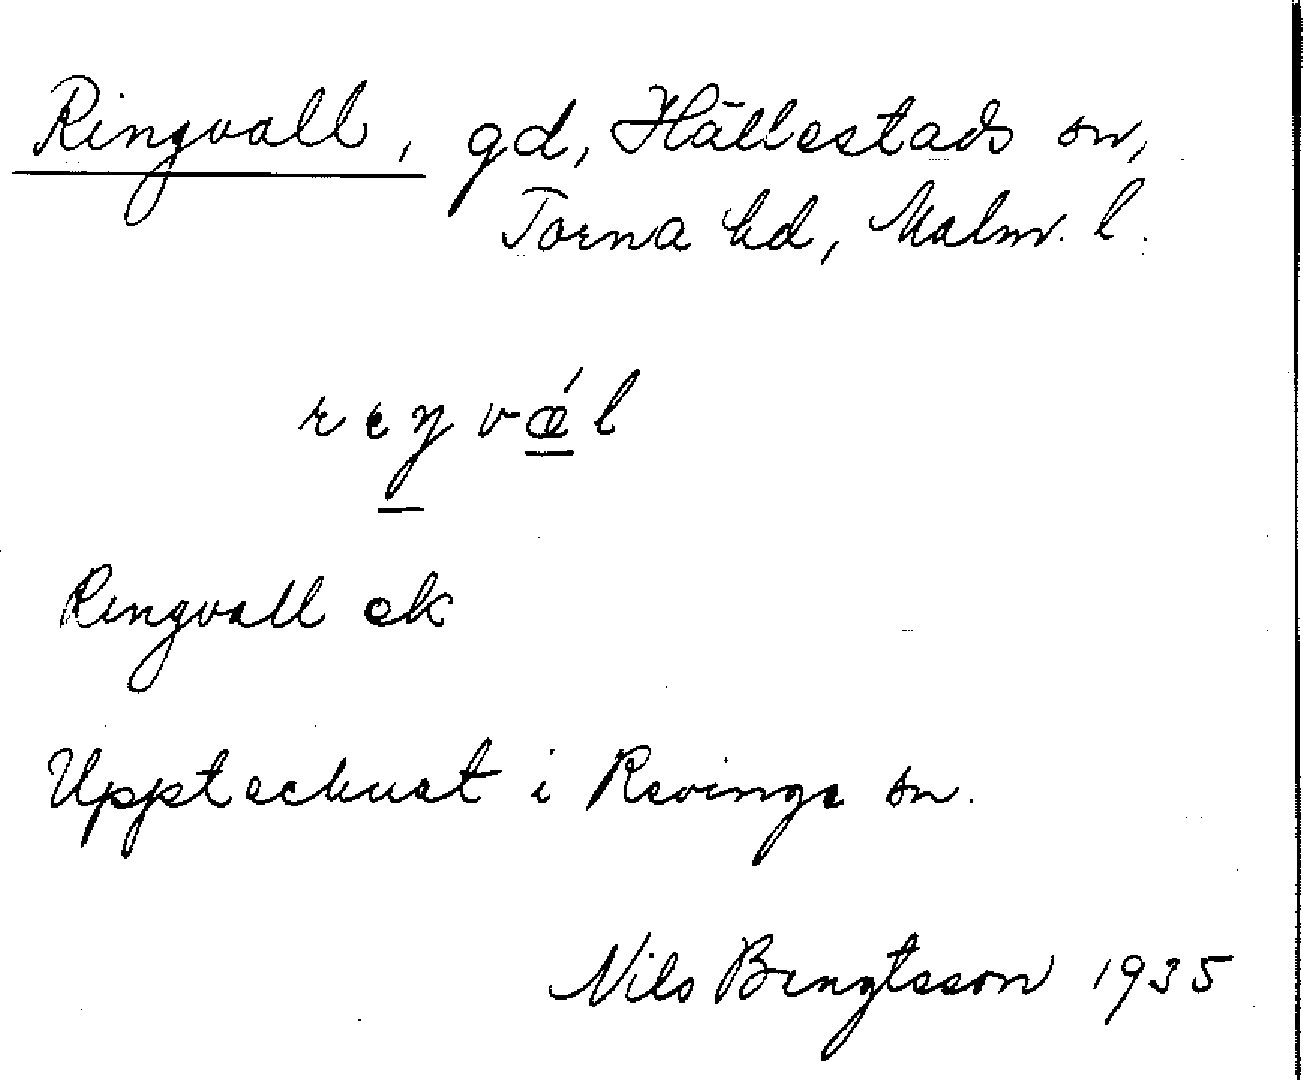 Ringvall, gd, Hällestads sn,
Torna hd, Malm. l.
reŋvǽl
Ringvall ek
Upptecknat i Revinge sn.
Nils Bengtsson 1935